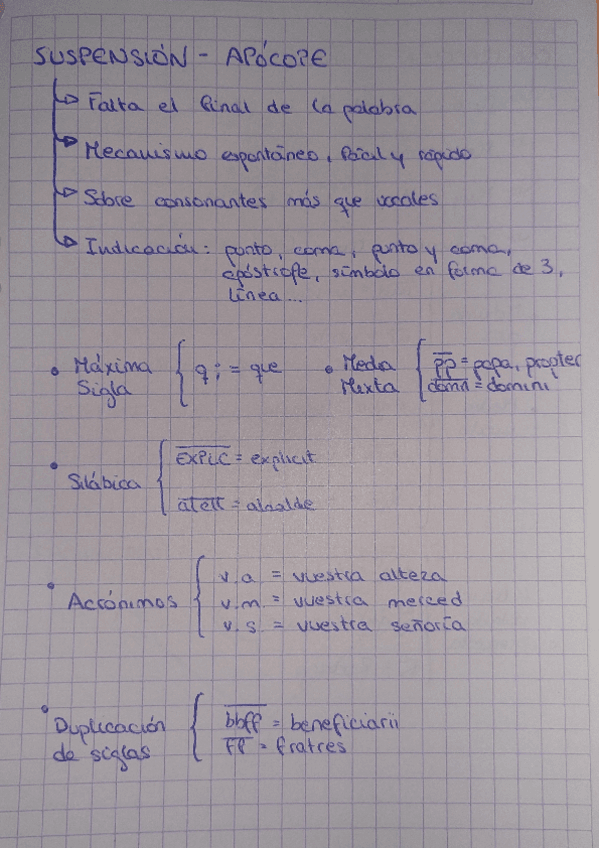 SUSPENSIÓN - APÓCOPE
Falta el final de la palabra
Mecanismo espontáneo, fácil y rápido
Sobre consonantes más que vocales
Indicación: punto, coma, punto y coma,
apóstrofe, símbolo en forma de 3,
línea...
Máxima Sigla { q; = que
Media Mixta { pp = papa, propter
= domini
Silábica { EXPLC = explicit
= alcalde
Acrónimos { v.a = vuestra alteza
v.m. = vuestra merced
v.s. = vuestra señoría
Duplicación de siglas { bbff = beneficiarii
ff = fratres